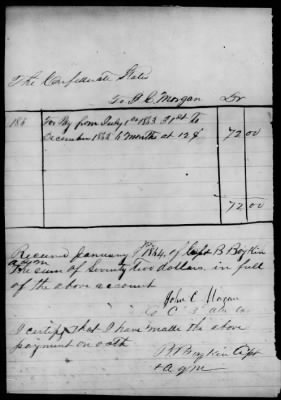 The Confederate States
To J. C. Morgan Dr
186 For Pay from July 1st 1863 31st to
December 1863 6 months at 12 $ 72 00
72 00
Received January 1864, of Capt B Boykin
AQM The sum of Seventy two dollars in full
of the above account
John C. Mogan
I certify that I have made the above
payment on oath
B Boykin Capt
& AQM